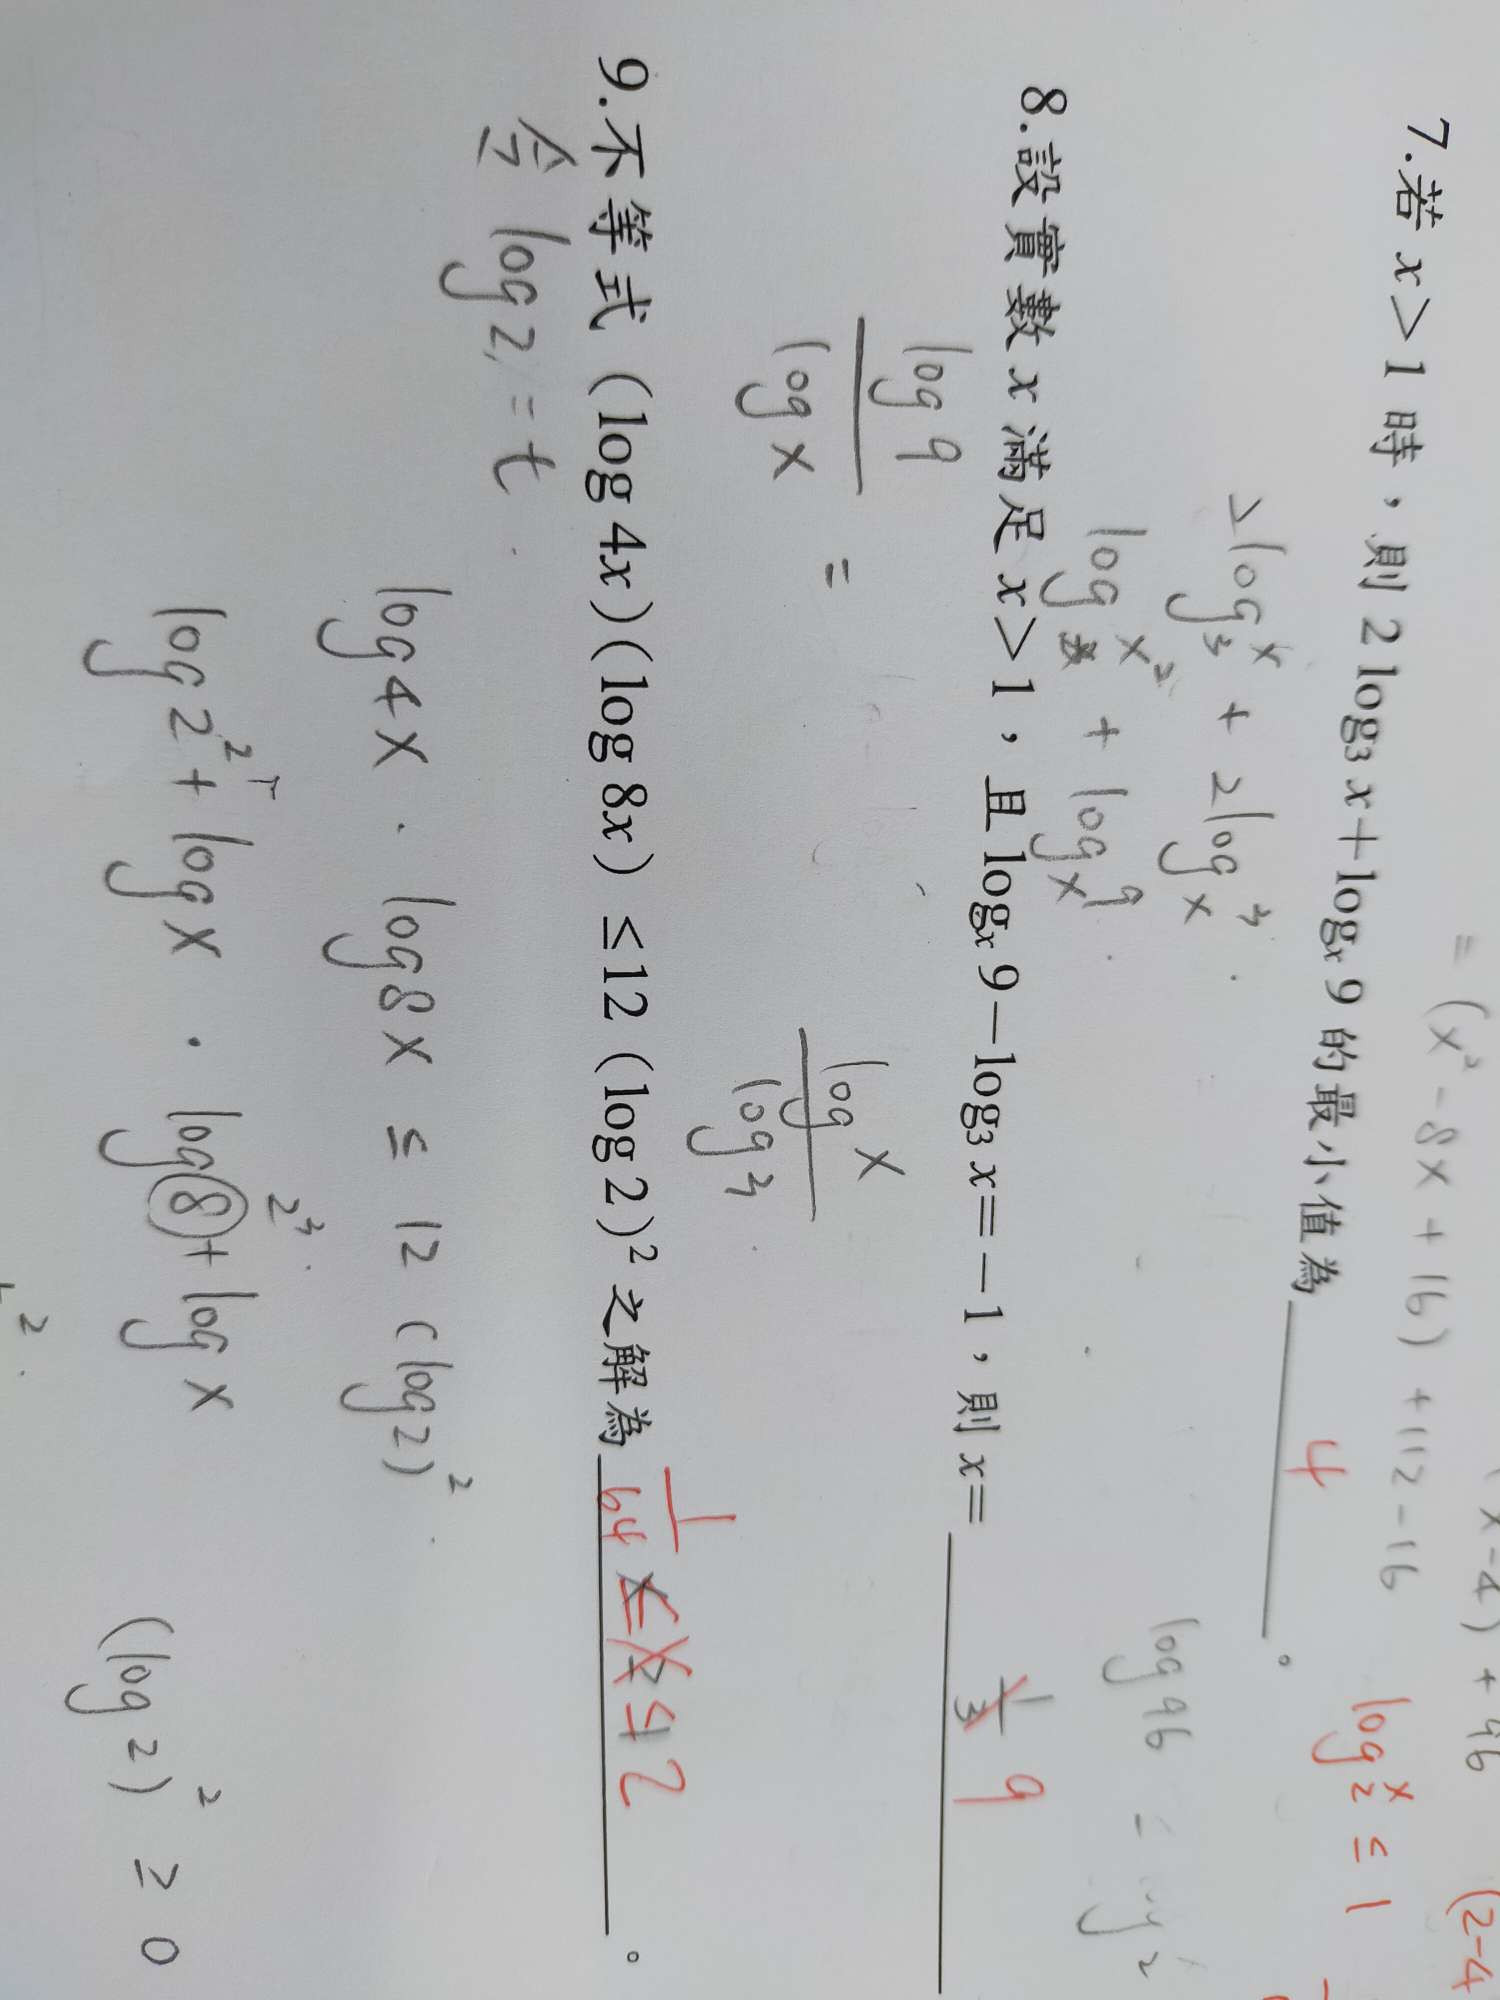 = (x² - 8x + 16) + 112 - 16
7.若 x＞1 時，則 2 log₃ x＋logₓ 9 的最小值為 4 。
log₂ x ≤ 1
(2-4
2log₃ x + 2 logₓ 3
log x² + logₓ 9
log 96 =
8.設實數 x 滿足 x＞1，且 logₓ 9－log₃ x＝－1，則 x＝ 1/3 9
log 9 / log x = log x / log 3
9.不等式（log 4x）（log 8x）≤12（log 2）² 之解為 1/64 ≤ x ≤ 2 。
令 log 2 = t
log 4x · log 8x ≤ 12 (log 2)²
log 2² + log x · log 8 + log x
2³
(log 2)² ≥ 0